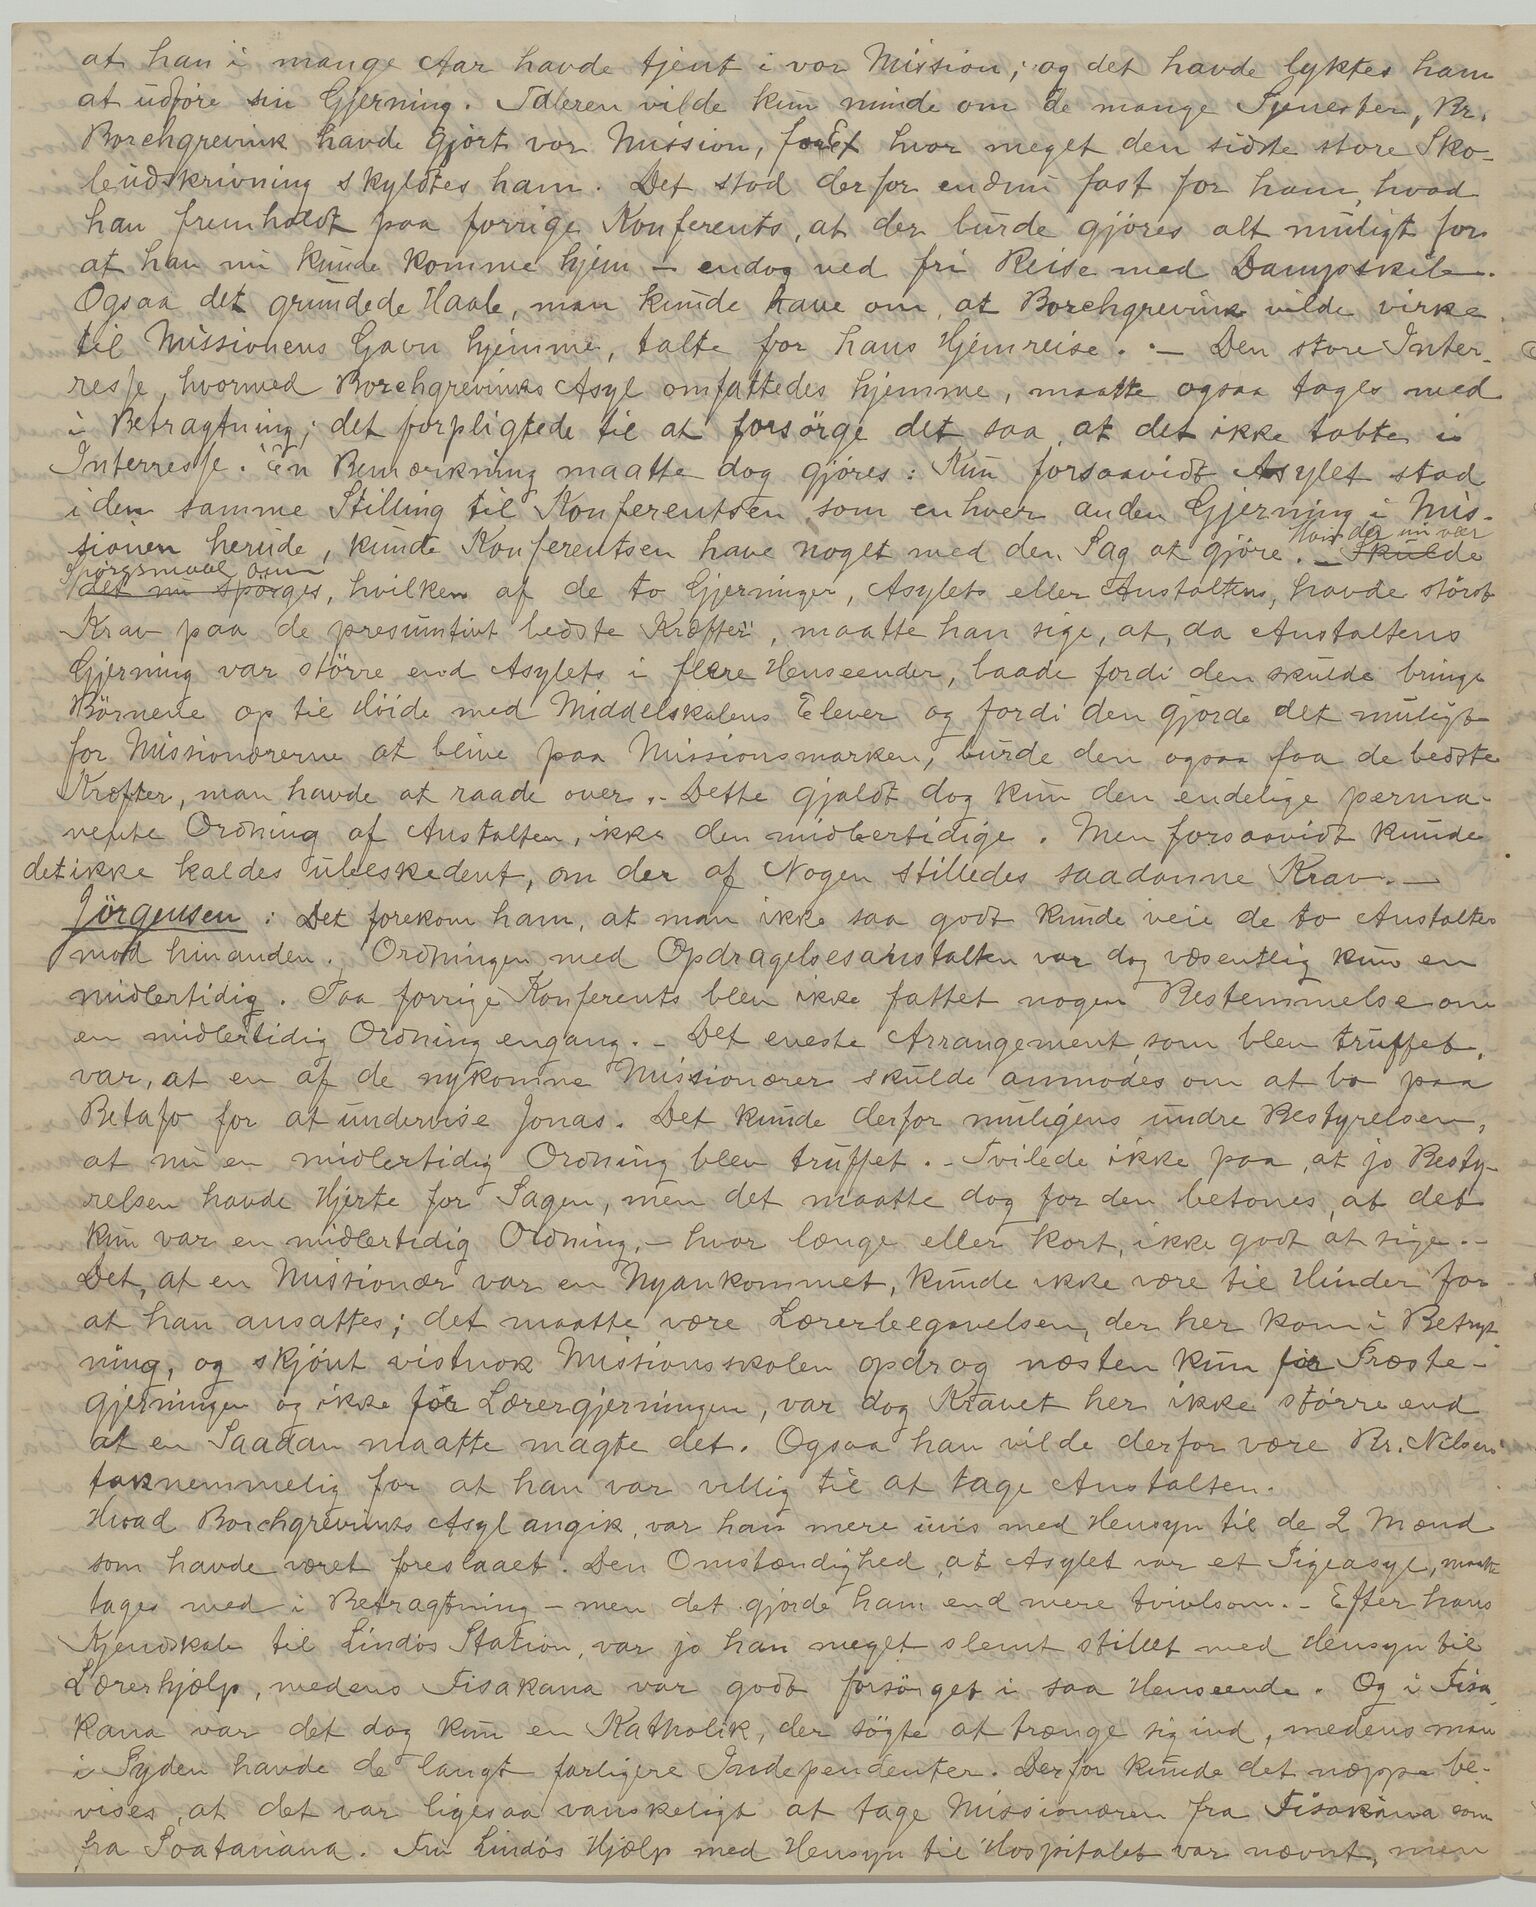 at han i mange Aar havde tjent i vor Mission; og det havde lyktes ham
at udføre sin Gjerning. Taleren vilde kun minde om de mange Tjenester, Br.
Borchgrevink havde gjort vor Mission, for Ex hvor meget den sidste store Sko-
leudskrivning skyldtes ham. Det stod derfor endnu fast for ham, hvad
han fremholdt paa forrige Konferents, at der burde gjöres alt muligt for
at han nu kunde komme hjem – endog ved fri Reise med Dampskib.
Ogsaa det grundede Haab, man kunde have om, at Borchgrevink vilde virke
til Missionens Gavn hjemme, talte for hans Hjemreise. – Den store Inter-
resse, hvormed Borchgrevinks Asyl omfattedes hjemme, maatte ogsaa tages med
i Betragtning; det forpligtede til at forsörge det saa, at det ikke tabte i
Interresse. En Bemærkning maatte dog gjöres: Kun forsaavidt Asylet stod
i den samme Stilling til Konferentsen som enhver anden Gjerning i Mis-
sionen herude, kunde Konferentsen have noget med den Sag at gjöre. – Skulde
Hvis da nu var
Spörgsmaal om
det nu spörges, hvilken af de to Gjerninger, Asylets eller Anstaltens, havde störst
Krav paa de presumtivt bedste Kræfter, maatte han sige, at, da Anstaltens
Gjerning var större end Asylets i flere Henseender, baade fordi den skulde bringe
Börnene op til Höide med Middelskolens Elever og fordi den gjorde det muligt
for Missionærerne at blive paa Missionsmarken, burde den ogsaa faa de bedste
Kræfter, man havde at raade over. – Dette gjaldt dog kun den endelige perma-
nente Ordning af Anstalten, ikke den midlertidige. Men forsaavidt kunde
det ikke kaldes ubeskedent, om der af Nogen stilledes saadanne Krav. –
Jörgensen: Det forekom ham, at man ikke saa godt kunde veie de to Anstalter
mod hinanden. Ordningen med Opdragelsesanstalten var dog væsentlig kun en
midlertidig. Paa forrige Konferents blev ikke fattet nogen Bestemmelse om
en midlertidig Ordning engang. – Det eneste Arrangement, som blev truffet,
var, at en af de nykomne Missionærer skulde anmodes om at bo paa
Betafo for at undervise Jonas. Det kunde derfor muligens undre Bestyrelsen,
at nu en midlertidig Ordning blev truffet. – Tvilede ikke paa, at jo Besty-
relsen havde Hjerte for Sagen, men det maatte dog for den betones, at det
kun var en midlertidig Ordning, – hvor længe eller kort, ikke godt at sige. –
Det, at en Missionær var en Nyankommet, kunde ikke være til Hinder for
at han ansattes; det maatte være Lærerbegavelsen, der her kom i Betragt-
ning, og skjönt vistnok Missionsskolen opdrog næsten kun for Præste-
gjerningen og ikke for Lærergjerningen, var dog Kravet her ikke större end
at en Saadan maatte magte det. Ogsaa han vilde derfor være Br. Nilsen
taknemmelig for at han var villig til at tage Anstalten.
Hvad Borchgrevinks Asyl angik, var han mere uvis med Hensyn til de 2 Mænd
som havde været foreslaaet. Den Omstændighed, at Asylet var et Pigeasyl, maatte
tages med i Betragtning – men det gjorde ham end mere tvivlsom. – Efter hans
Kjendskab til Lindös Station, var jo han meget slemt stillet med Hensyn til
Lærerhjælp, medens Fisakana var godt forsörget i saa Henseende. Og i Fisa-
kana var det dog kun en Katholik, der sögte at trænge sig ind, medens man
i Syden havde de langt farligere Independenter. Derfor kunde det næppe be-
vises, at det var ligesaa vanskeligt at tage Missionæren fra Fisakana som
fra Soatanana. Fru Lindös Hjælp med Hensyn til Hospitalet var nævnt, men